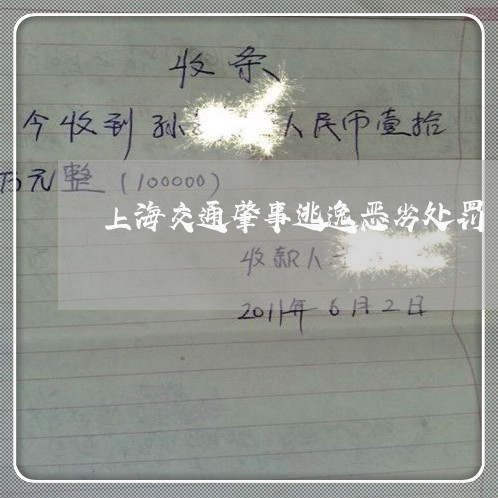 收条
今收到孙 人民币壹拾
万元整(100000)
上海交通肇事逃逸恶劣处罚
收款人
2011年6月2日